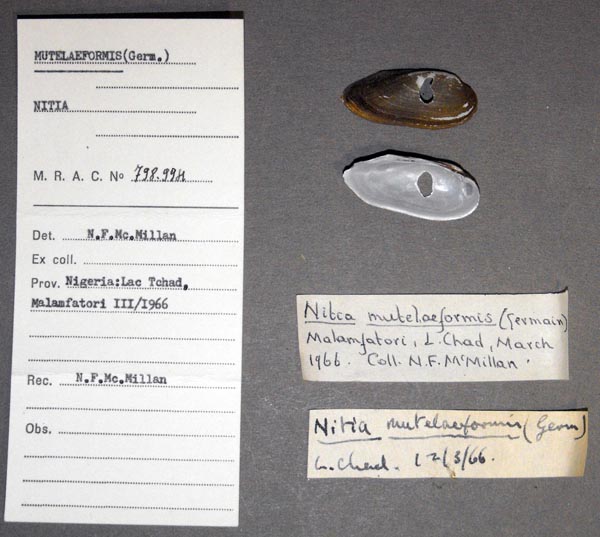 MUTELAEFORMIS(Germ.)
NITIA
M. R. A. C. No 798.994
Det. N.F.Mc.Millan
Ex coll.
Prov. Nigeria:Lac Tchad,
Malamfatori III/1966
Rec. N.F.Mc.Millan
Obs.
Nitia mutelaeformis (Germain)
Malamfatori, L. Chad, March
1966. Coll. N.F. McMillan.
Nitia mutelaeformis (Germ)
L. Chad. 12/3/66.